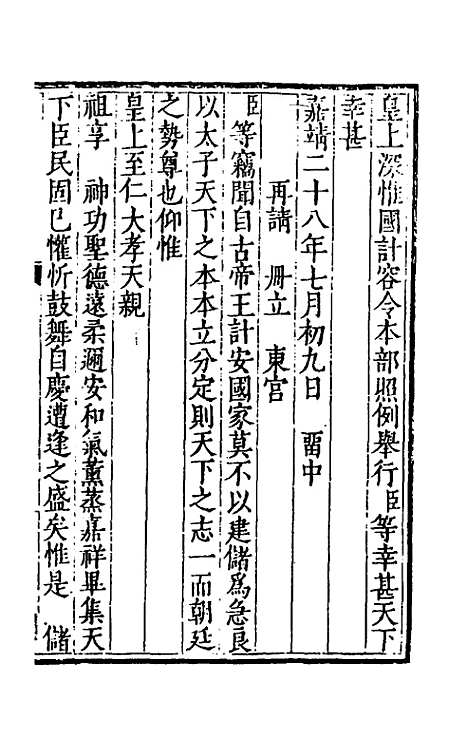 皇上深惟國計容令本部照例舉行臣等幸甚天下
幸甚
嘉靖二十八年七月初九日　畱中
再請　冊立　東宫
臣等竊聞自古帝王計安國家莫不以建儲爲急良
以太子天下之本本立分定則天下之志一而朝廷
之勢尊也仰惟
皇上至仁大孝天親
祖享　神功聖德遠柔邇安和氣薰蒸嘉祥畢集天
下臣民固已懽忻鼓舞自慶遭逢之盛矣惟是　儲